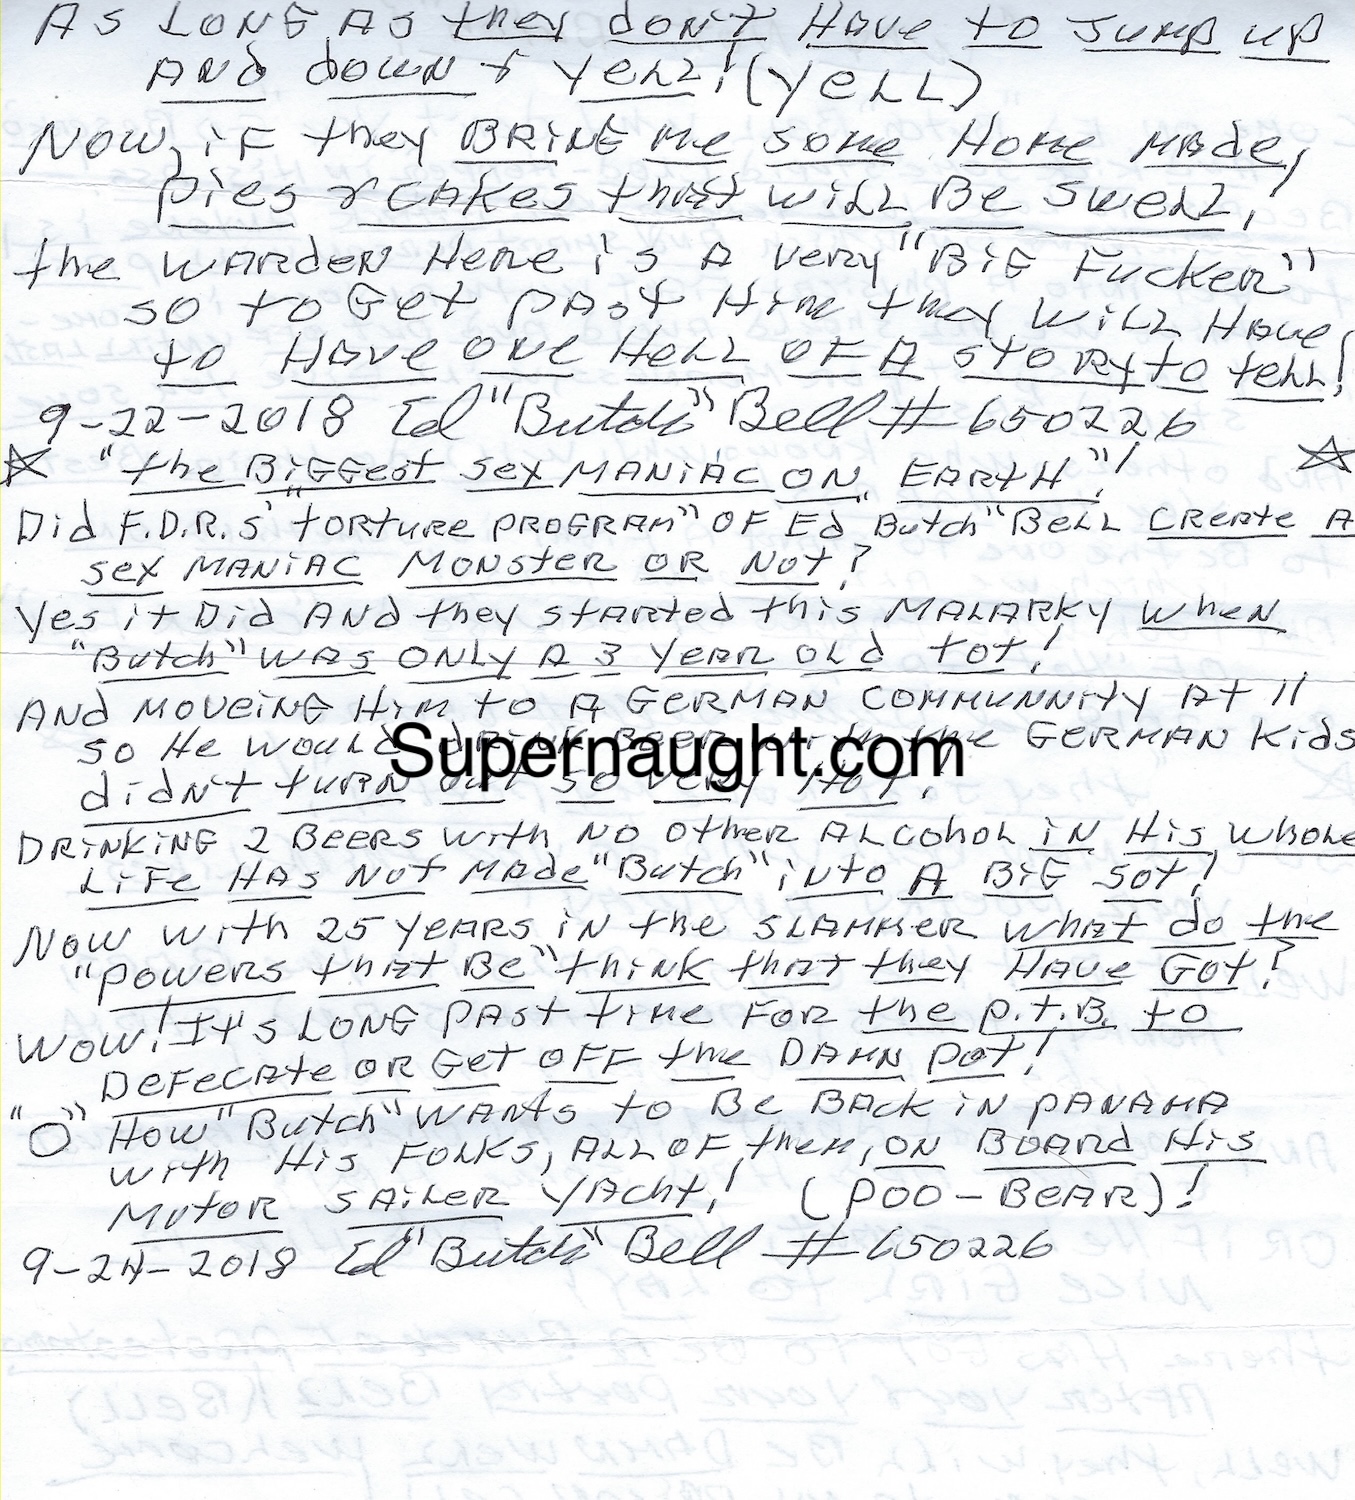 AS LONG AS they don't HAVE to JUMP UP
AND dOWN & YeLL! (YeLL)
NOW, iF they BRING Me SOMe HOMe MADe,
Pies & CAKes that WiLL Be SWeLL!
the WARDeN HeRe is A VeRy "BiG FUCKeR"
SO tO Get PAst HiM they WiLL HAVe
tO HAVe ONe HeLL OF A StORY tO teLL!
9-22-2018 Ed "Butch" Bell #650226
☆ "the BiGGest Sex MANiAC ON EARtH"! ☆
Did F.D.R.s' "tORtURe PROGRAM" OF Ed "Butch" BeLL CReAte A
Sex MANiAC MONSteR OR NOt?
Yes it Did AND they StARted this MALARKY WheN
"Butch" WAS ONLY A 3 YeAR OLd tOt!
ANd MOVeiNG HiM tO A GeRMAN COMMUNNitY At 11
SO He WOULd dRiNK BeeR With the GeRMAN Kids
didN't tURN OUt SO VeRY HOt!
DRiNKiNG 2 BeeRS With NO OtheR ALCOhOL iN His WhOLe
LiFe HAS NOt MADe "Butch" iNtO A BiG SOt!
NOW With 25 YeARS iN the SLAMMeR WhAt dO the
"POWeRS thAt Be" thiNK thAt they HAVe GOt?
WOW! It's LONG PAst tiMe FOR the P.T.B. tO
DeFeCAte OR Get OFF the DAMN POt!
"O" HOW "Butch" WANts tO Be BACK iN PANAMA
With His FOLKS, ALL OF theM, ON BOARd His
MOtOR SAiLeR YACht! (POO-BeAR)!
9-24-2018 Ed "Butch" Bell #650226
Supernaught.com